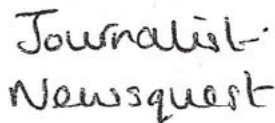 Journalist.
Newsquest